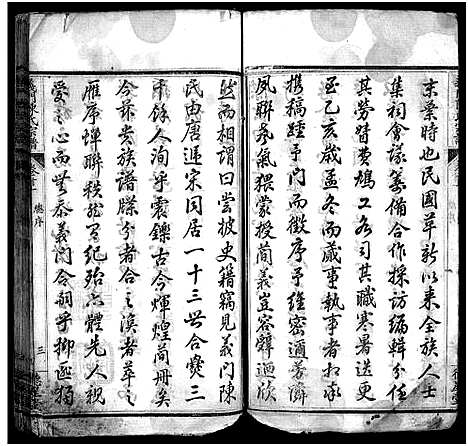 末葉時也民國革新以来全族人士
集祠會議籌備合作採訪編輯分任
其勞督費鳩工各司其職寒暑迭更
至乙亥歲孟冬而蕆事執事者和家
携稿踵予門而徵序予維密邇芳隣
夙聯聲氣猥蒙授簡義豈容辭迺欣
然而相謂曰嘗披史籍竊見義門陳
氏由唐迄宋同居一十三世合爨三
千餘人洵乎震鑠古今煇煌簡冊矣
今茲貴族譜牒分者合之渙者萃之
雁序蟬聯秩然有紀殆亦體先人親
愛之心而無忝義門令嗣乎抑亟獨
總序
三